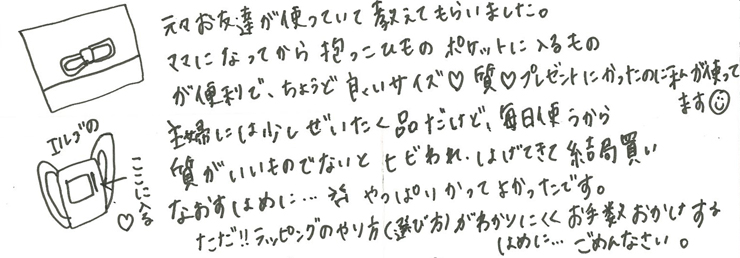 元々お友達が使っていて教えてもらいました。
ママになってから抱っこひものポケットに入るもの
が便利で、ちょうど良いサイズ♡質♡プレゼントにかったのに私が使って
ます☺
主婦には少しぜいたく品だけど、毎日使うから
質がいいものでないとヒビわれ、はげてきて結局買い
なおすはめに… やっぱりかってよかったです。
ただ!!ラッピングのやり方(選び方)がわかりにくくお手数おかけする
はめに… ごめんなさい。
エルゴの
ここに入る
♡